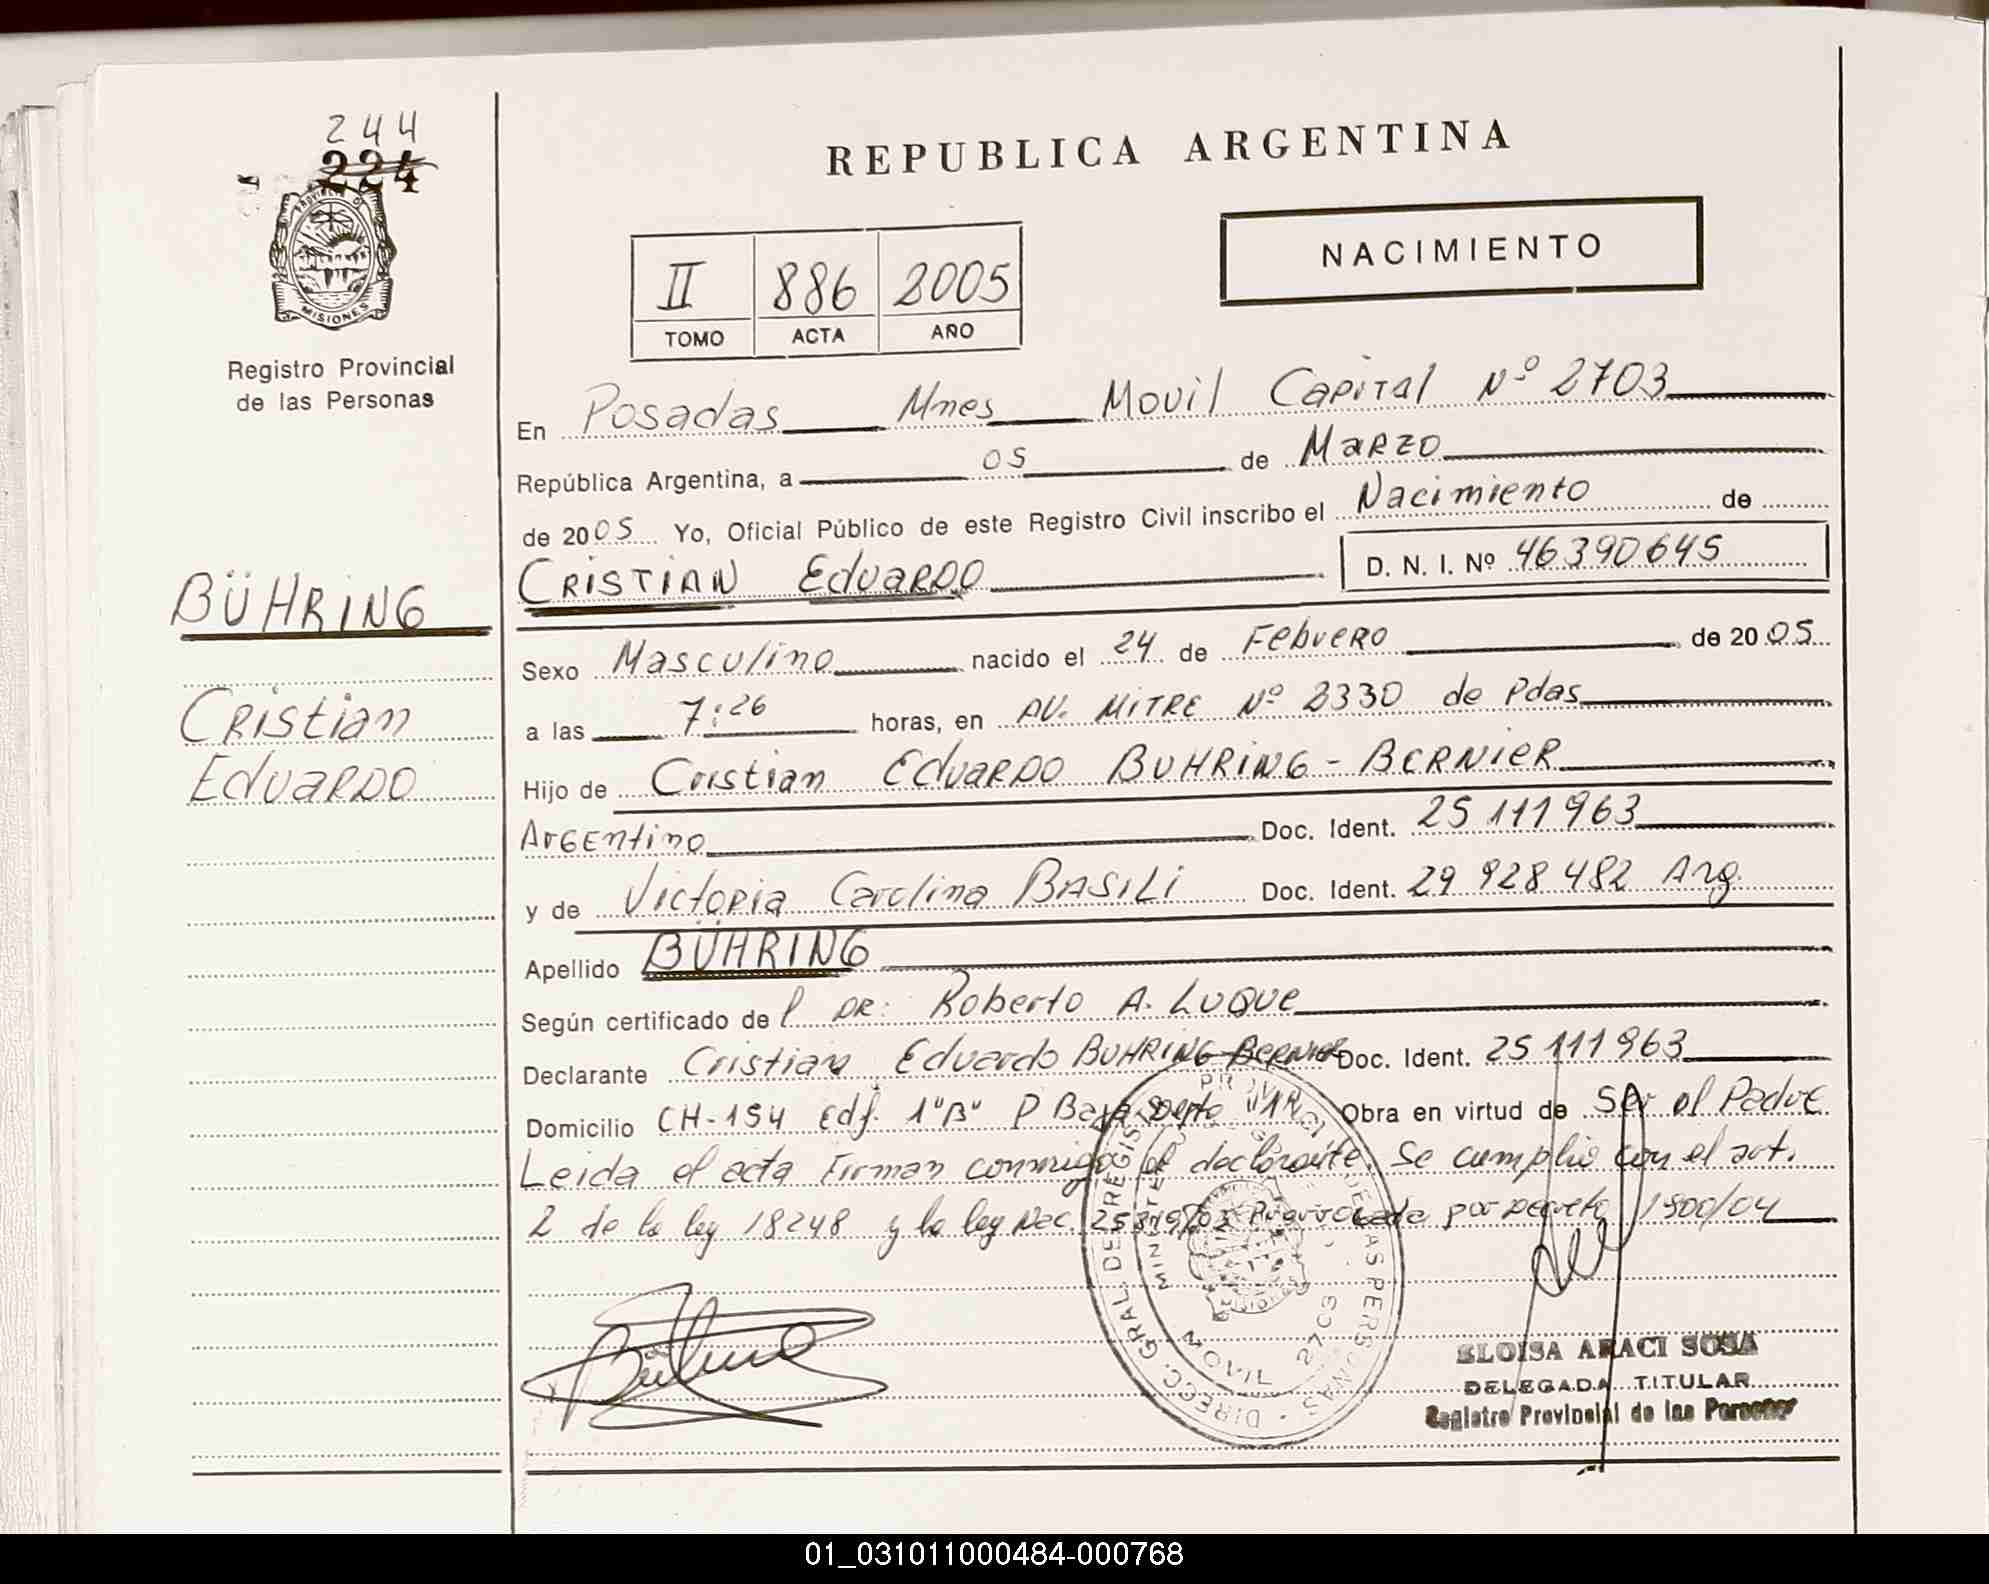 244
224
PROVINCIA D
MISIONES
Registro Provincial
de las Personas
BÜHRING
Cristian
Eduardo
REPUBLICA ARGENTINA
NACIMIENTO
II 886 2005
TOMO ACTA AÑO
En Posadas Mnes Movil Capital Nº 2703
República Argentina, a 05 de Marzo
de 2005 Yo, Oficial Público de este Registro Civil inscribo el Nacimiento de
CRISTIAN Eduardo D. N. I. Nº 46390645
Sexo Masculino nacido el 24 de Febrero de 2005
a las 7:26 horas, en AV. MITRE Nº 2330 de Pdas
Hijo de Cristian Eduardo BUHRING - BERNIER
Argentino Doc. Ident. 25 111 963
y de Victoria Carolina BASILI Doc. Ident. 29 928 482 Arg.
Apellido BÜHRING
Según certificado del DR: Roberto A. Luque
Declarante Cristian Eduardo BUHRING-BERNIER Doc. Ident. 25 111 963
Domicilio CH-154 edf. 1"B" P Baja Depto Obra en virtud de Ser el Padre
Leida el acta Firman conmigo el declarante. Se cumplio con el art.
2 de la ley 18248 y la ley Nac. por Decreto 1500/04
DIRECC. GRAL. DE REGIS DE LAS PERSONAS
MOVIL 2703
ELOISA ARACI SOSA
DELEGADA TITULAR
Registro Provincial de las Personas
01_031011000484-000768